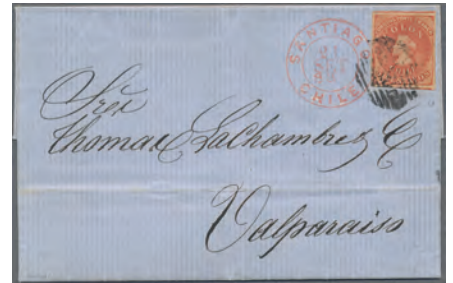 SANTIAGO
CHILE
COLON
Sres
Thomas LaChambre y C
Valparaiso